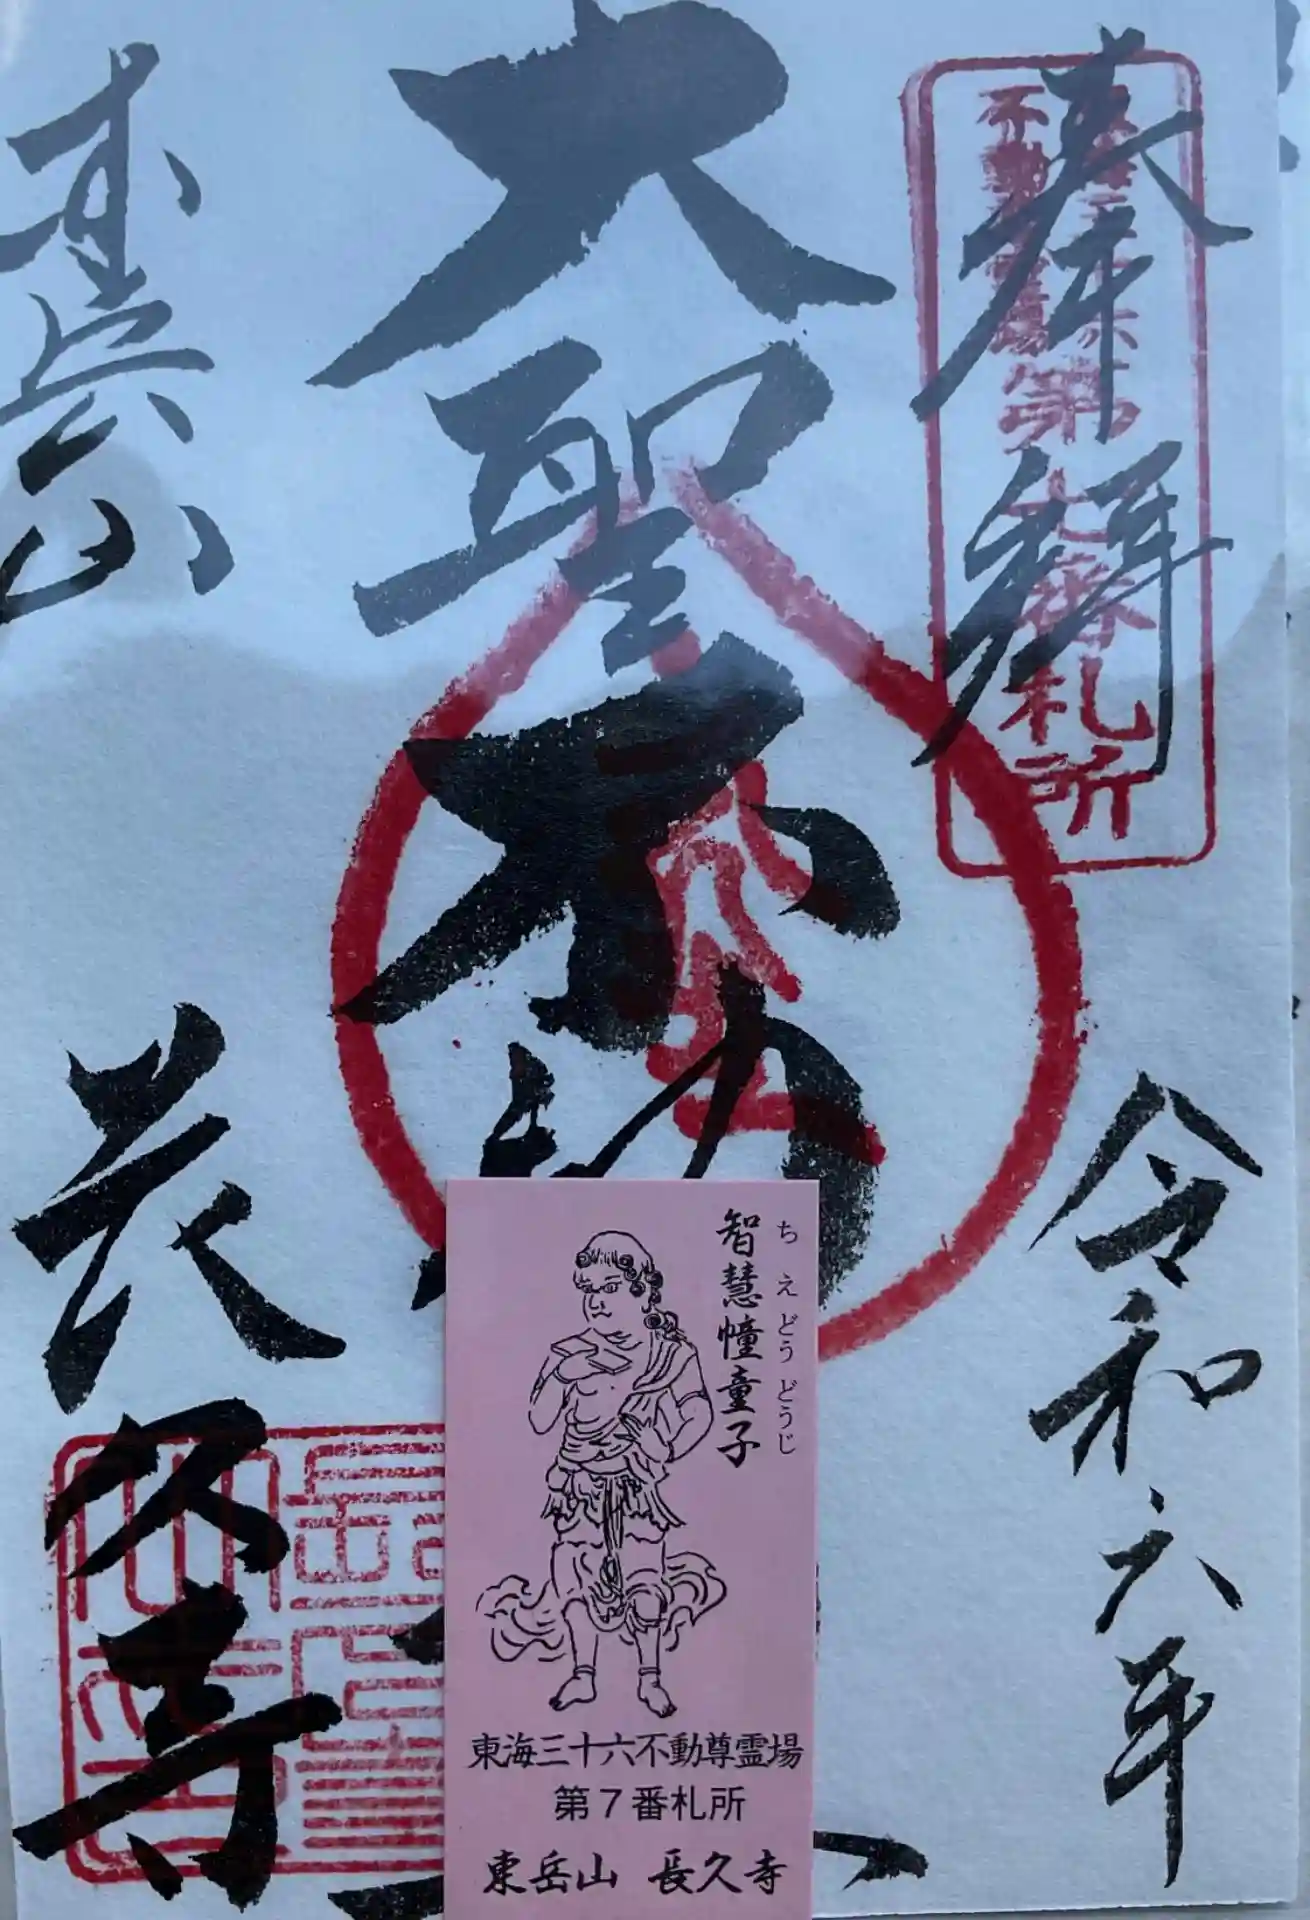 奉拝
不動
第七番札所
令和六年
大聖不動
東岳山
長久寺
智慧幢童子
ちえどうどうじ
東海三十六不動尊霊場
第7番札所
東岳山 長久寺